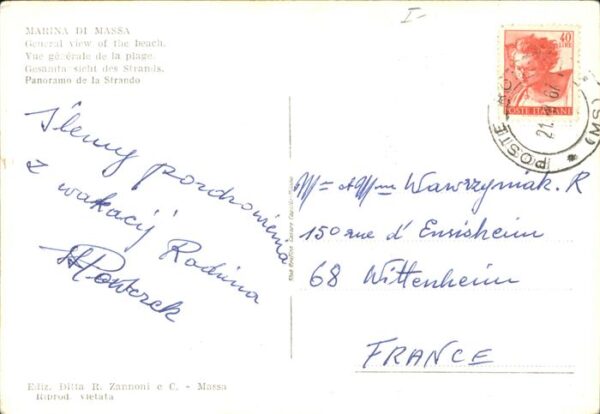 MARINA DI MASSA
General view of the beach.
Vue générale de la plage.
Gesamta sicht des Strands.
Panoramo de la Strando
I-
40
LIRE
POSTE ITALIANE
POSTE
21.
67
(SW)
Ślemy pozdrowienia
z wakacji Rodzina
Mr et Mme Wawrzyniak. R
150 rue d'Ensisheim
68 Wittenheim
FRANCE
Ediz. Ditta R. Zannoni e C. - Massa
Riprod. vietata